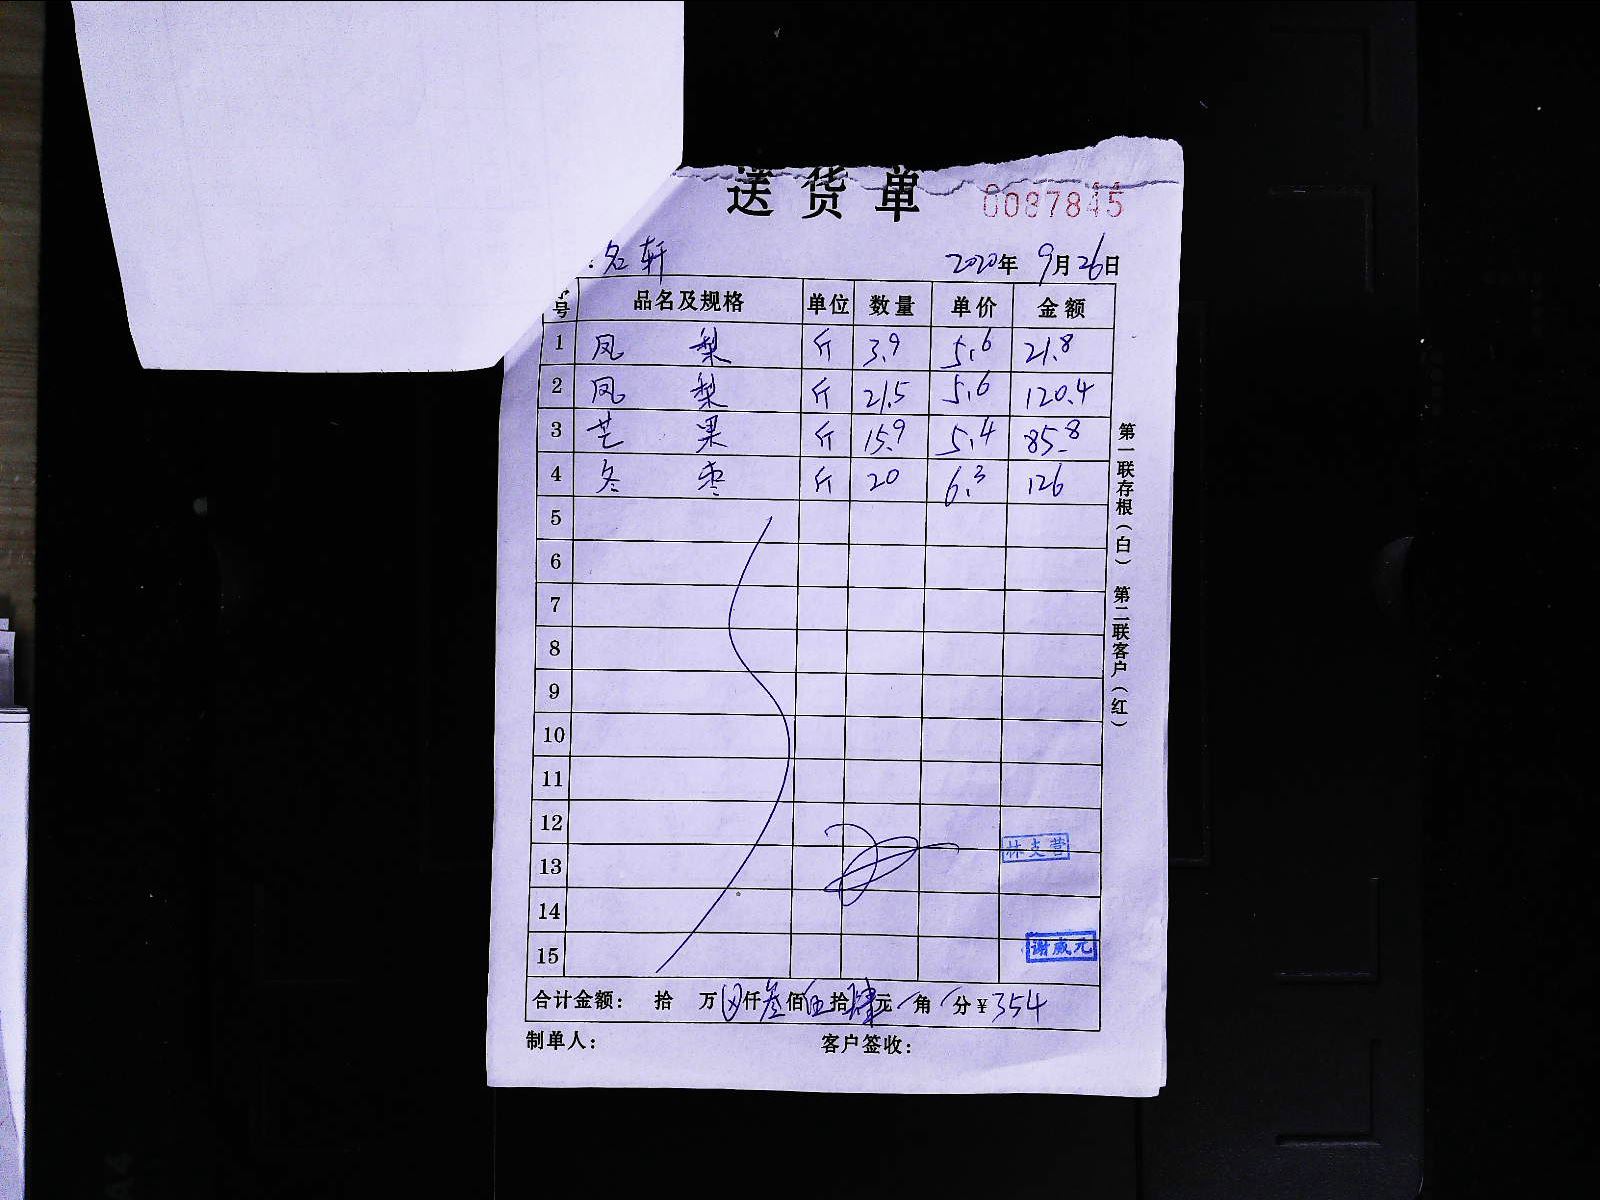 送货单 0087845
：名轩 2020年9月26日
号 品名及规格 单位 数量 单价 金额
1 凤梨 斤 3.9 5.6 21.8
2 凤梨 斤 21.5 5.6 120.4
3 芒果 斤 15.9 5.4 85.8
4 冬枣 斤 20 6.3 126
5
6
7
8
9
10
11
12
13
14
15
林支营
谢咸元
合计金额： 拾 万 仟叁佰伍拾肆元 角 分¥354
制单人： 客户签收：
第一联存根（白） 第二联客户（红）